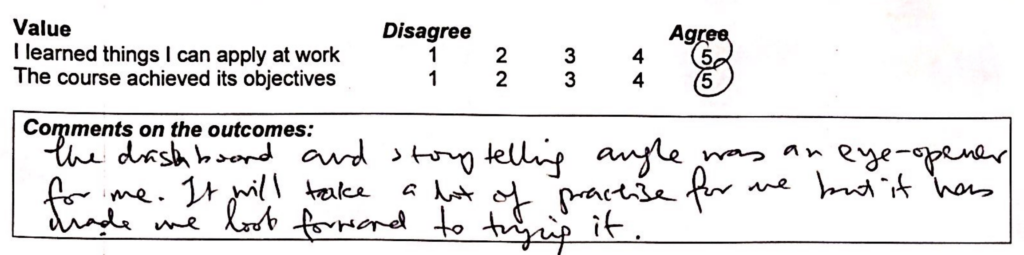 Value Disagree Agree
I learned things I can apply at work 1 2 3 4 5
The course achieved its objectives 1 2 3 4 5
Comments on the outcomes:
The dashboard and storytelling angle was an eye-opener
for me. It will take a lot of practise for me but it has
made me look forward to trying it.